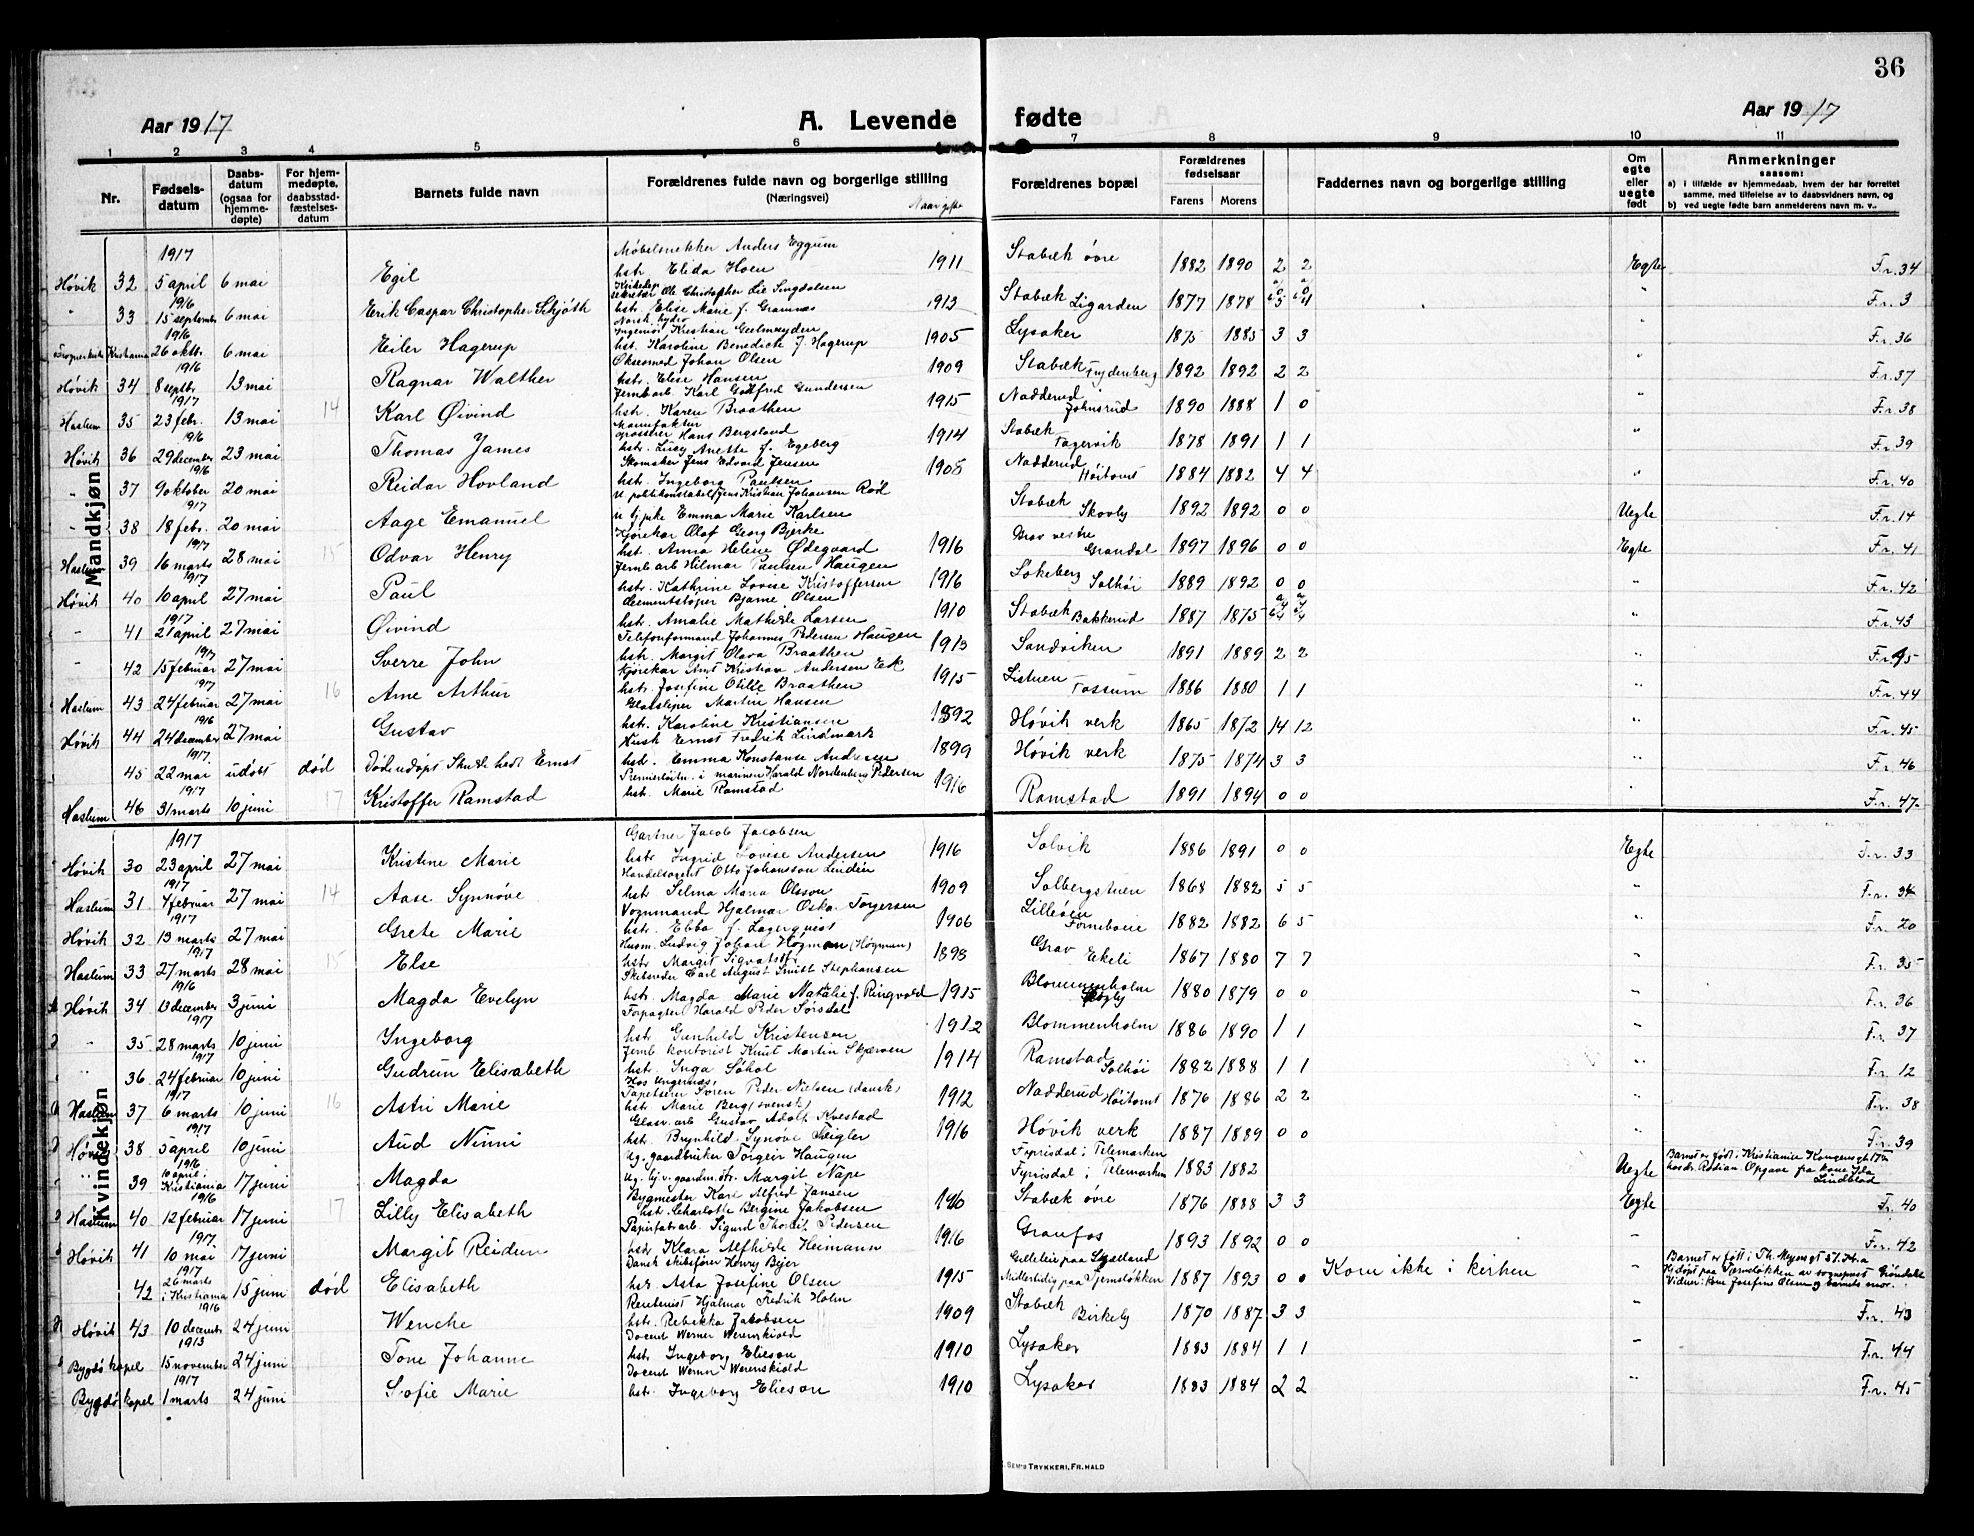 36
Aar 1917
A. Levende fødte
Aar 1917
1 2 3 4 5 6 7 8 9 10 11
Nr.
Fødsels-
datum
Daabs-
datum
(ogsaa for
hjemme-
døpte)
For hjem-
medøpte,
daabsstad-
fæstelses-
datum
Barnets fulde navn
Forældrenes fulde navn og borgerlige stilling
(Næringsvei)
Naar gifte
Forældrenes bopæl
Forældrenes
fødselsaar
Farens Morens
Faddernes navn og borgerlige stilling
Om
egte
eller
uegte
født
Anmerkninger
saasom:
a) i tilfælde av hjemmedaab, hvem der har forrettet
samme, med tilføielse av to daabsvidners navn, og
b) ved uegte fødte barn anmelderens navn m. v..
Mandkjøn
1917 Møbelsnekker Anders Eggum
Høvik 32 5 april 6 mai Egil hstr. Elida Hoen 1911 Stabæk øvre 1882 1890 2 2 Egte F.r. 34
1916 sekretær Ole Christopher Lie Singdalsen
" 33 15 september 6 mai Erik Caspar Christopher Skjøth hstr. Elise Marie f. Gramnæs 1913 Stabæk Ligarden 1877 1878 " F.r. 3
1916 Norsk hydro Ingeniør Kristian Geelmuyden
Kristiania 26 oktr. 6 mai Eiler Hagerup hst. Karoline Benedicte f. Hagerup 1905 Lysaker 1875 1885 3 3 " F.r. 36
1916 Johan Olsen
Høvik 34 8 septbr. 13 mai Ragnar Walther hstr. Elise Hansen 1909 Stabæk 1892 1892 2 2 " F.r. 37
1917 Jernb arb. Karl Gotfred Gundersen
Haslum 35 23 febr. 13 mai 14 Karl Øivind hst. Karen Braathen 1915 Nadderud Johnsrud 1890 1888 1 0 F.r. 38
1916 Manufaktur grosserer Hans Bergsland
Høvik 36 29 december 23 mai Thomas James hstr. Lucy Anette f. Egeberg 1914 Stabæk Fagervik 1878 1891 1 1 " F.r. 39
1916 Skomaker Jens Edvard Jensen
" 37 9 oktober 20 mai Reidar Hovland hstr. Ingeborg Paulsen 1905 Nadderud Høitomt 1884 1882 4 4 " F.r. 40
1917 Kristian Johansen Rød
" 38 18 febr. 20 mai Aage Emanuel u tj pike Emma Marie Karlsen Stabæk Skovly 1892 1892 0 0 Uegte F.r. 14
1917 Kjørekar Olaf Georg Bjerke
Haslum 39 16 marts 28 mai 15 Odvar Henry hst. Anna Helene Ødegaard 1916 Grav vestre Grandal 1897 1896 0 0 Egte F.r. 41
1917 Jernb arb Hilmar Paulsen Haugen
Høvik 40 10 april 27 mai Paul hst. Kathrine Lovise Kristoffersen 1916 Løkeberg Solhøi 1889 1892 0 0 " F.r. 42
1917 Cementstøper Bjarne Olsen
" 41 21 april 27 mai Øivind hst. Amalie Mathilde Larsen 1910 Stabæk Bakkerud 1887 1875 " F.r. 43
1917 Telefonformand Johannes Pedersen Haugen
" 42 15 februar 27 mai Sverre John hst. Margit Olava Braathen 1913 Sandviken 1891 1889 2 2 " F.r. 95
1917 Kjørekar Arnt Kristian Andersen Eek
Haslum 43 24 februar 27 mai 16 Arne Arthur hstr. Josefine Otilie Braathen 1915 Listuen Fossum 1886 1880 1 1 " F.r. 44
1916 Glassliper Martin Hansen
Høvik 44 24 december 27 mai Gustav hst. Karoline Kristiansen 1892 Høvik verk 1865 1872 14 12 " F.r. 45
1917 Husk Ernst Fredrik Lindmark
45 22 mai udøbt død Død udøpt Skulde hedt Ernst hst. Emma Konstanse Andresen 1899 Høvik verk 1875 1874 3 3 " F.r. 46
1917 Premierløitn. i marinen Harald Nordenborg Pedersen
Haslum 46 31 marts 10 juni 17 Kristoffer Ramstad hst. Marie Ramstad 1916 Ramstad 1891 1894 0 0 " F.r. 47
Kvindekjøn
1917 Gartner Jacob Jacobsen
Høvik 30 23 april 27 mai Kristine Marie hstr Ingrid Lovise Andersen 1916 Solvik 1886 1891 0 0 Egte F.r. 33
1917 Handelsagent Otto Johansson Lindén
Haslum 31 7 februar 27 mai 14 Aase Synnøve hst. Selma Maria Olsson 1909 Solbergstuen 1868 1882 5 5 " F.r. 34
1917 Vognmand Hjalmar Oskar Torgersen
Høvik 32 13 marts 27 mai Grete Marie hst. Ebba f. Lagerqvist 1906 Lilleøen Forneboie 1882 1882 6 5 " F.r. 20
1917 Husm. Ludvig Johan Högman (Høgman)
Haslum 33 27 marts 28 mai 15 Else hst. Margit 1898 Grav Ekeli 1867 1880 7 7 " F.r. 35
1916 Skibsreder Carl August Smitt Stephansen
Høvik 34 13 december 3 juni Magda Evelyn hst. Magda Marie Natalie f. Ringvold 1915 Blommenholm 1880 1879 0 0 " F.r. 36
1917 Forpagter Harald Peder Sørsdal
" 35 28 marts 10 juni Ingeborg hst. Gunhild Kristensen 1912 Blommenholm 1886 1890 1 1 " F.r. 37
1917 Jernb kontorist Knut Martin Skjerven
36 24 februar 10 juni Gudrun Elisabeth hst. Inga Søhol 1914 Ramstad Solhøi 1882 1888 1 1 " F.r. 12
1917 Tapetserer Sören Peder Nielsen (dansk)
Haslum 37 6 marts 10 juni 16 Astri Marie hstr. Marie Berg (svensk) 1912 Nadderud Høitomt 1876 1886 2 2 " F.r. 38
1917 Glasv. arb Gustav Adolf Kvestad
Høvik 38 5 april 10 juni Aud Ninni hst. Brynhild Synove Zeigler 1916 Høvik verk 1887 1889 0 0 " F.r. 39
1916 Ug. gaardbruker Torgeir Haugen Fyrisdal i Telemarken Barnet er født i Kristiania Kongensgt 17
" 39 10 april i Kristiania 17 juni Magda Ug. tj. v. gaardm. dtr. Margit Nape Fyrisdal i Telemarken 1883 1882 Uegte Opgave fra kone Ida Lindblad
1916 Bygmester Karl Alfred Jansen
Haslum 40 12 februar 17 juni 17 Lilly Elisabeth hst. Charlotte Bergine Jakobsen 1910 Stabæk øvre 1876 1888 3 3 Egte F.r. 40
1917 Papirfab arb. Sigurd Thorolf Pedersen
Høvik 41 10 mai 17 juni Margit Reidun hst Klara Alfhilde Heimann 1916 Granfos 1893 1892 0 0 " F.r. 42
1917 Dansk skibsfører Henry Bejer Gilleleie paa Sjælland Barnet er født i Th. Meyersgt 51. Kr.a
42 26 marts i Kristiania 15 juni død Elisabeth hst. Asta Josefine Olsen 1915 Midlertidig paa Tjernsløkken 1887 1893 0 0 Kom ikke i kirken " Hj døpt paa Tjernsløkken av sogneprest Grøndahl
Vidner: kone Josefine Olsen og barnets mor.
1916 Hjalmar Fredrik Holm
Høvik 43 10 decembr 24 juni Wenche hst. Rebekka Jakobsen 1909 Stabæk Birkeby 1870 1887 3 3 " F.r. 43
1913 Docent Werner Werenskiold
Bygdø kapel 15 november 24 juni Tone Johanne hst. Ingeborg Elieson 1910 Lysaker 1883 1884 1 1 " F.r. 44
1917 Docent Werner Werenskiold
Bygdø kapel 1 marts 24 juni Sofie Marie hst. Ingeborg Elieson 1910 Lysaker 1883 1884 2 2 " F.r. 45
SEM'S TRYKKERI, FR.HALD